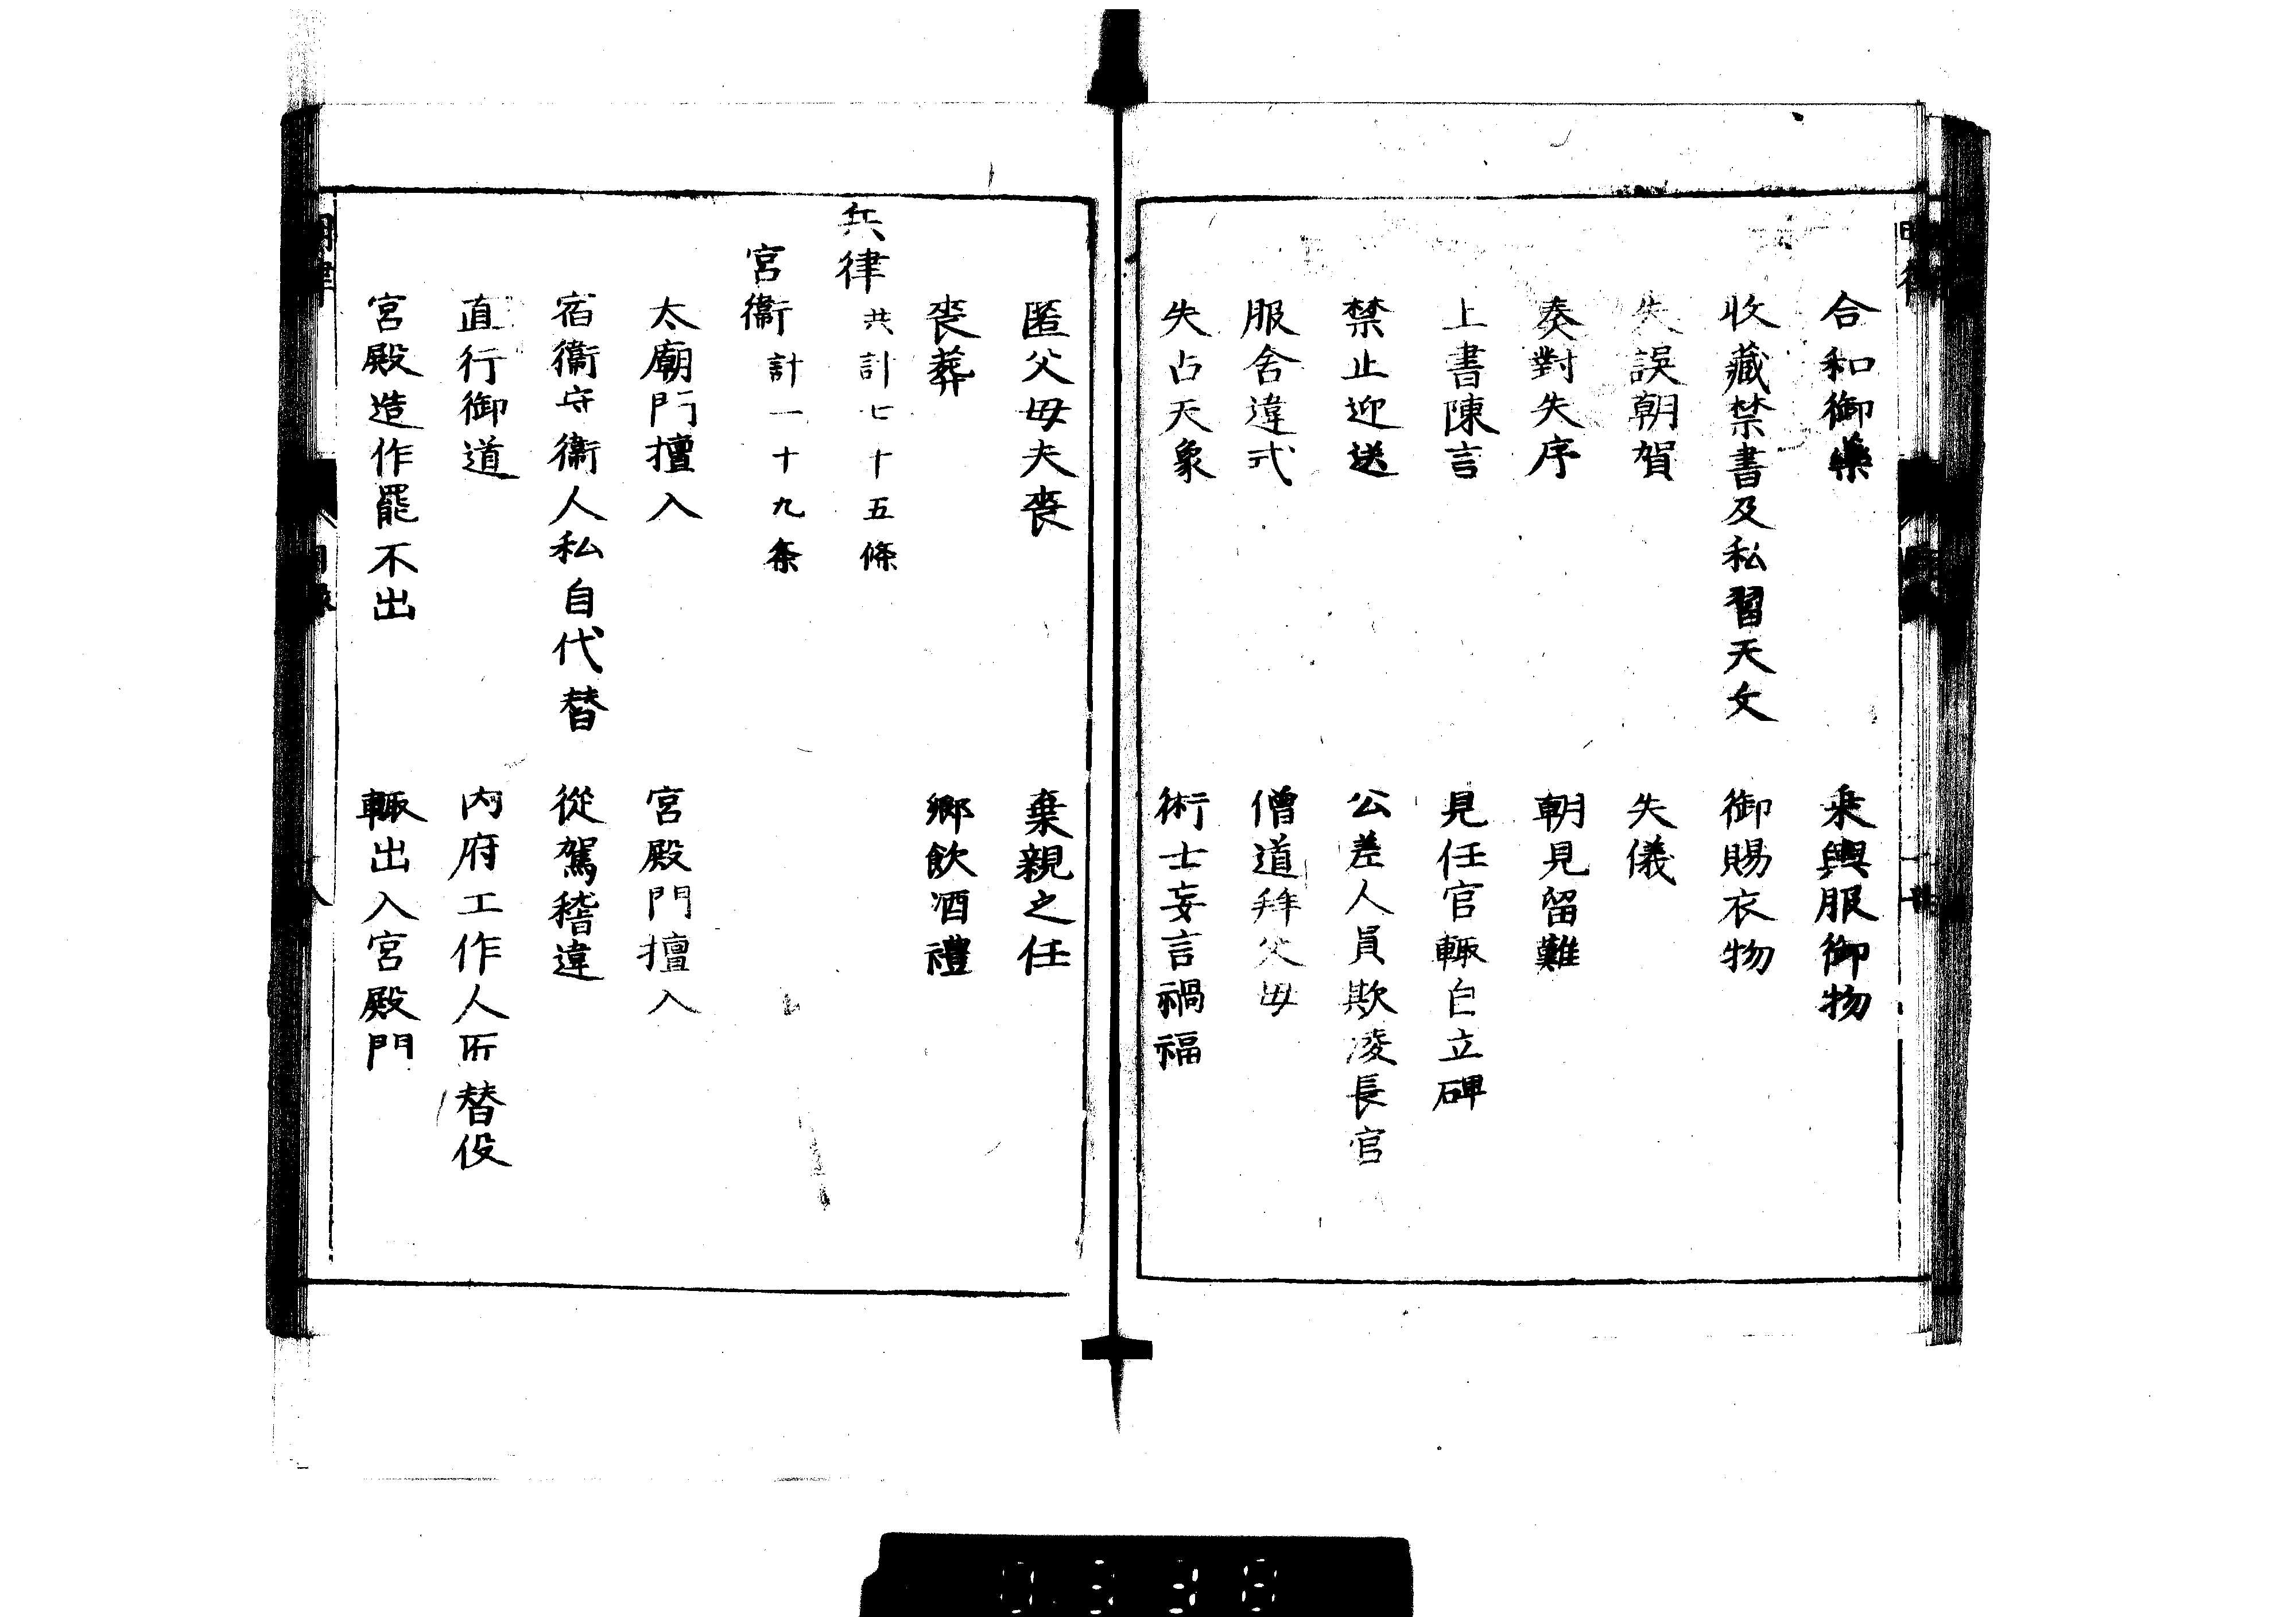 合和御藥　乘輿服御物
收藏禁書及私習天文　御賜衣物
失誤朝賀　失儀
奏對失序　朝見留難
上書陳言　見任官輙自立碑
禁止迎送　公差人員欺凌長官
服舍違式　僧道拜父母
失占天象　術士妄言禍福
匿父母夫喪　棄親之任
喪葬　鄉飲酒禮
兵律 共計七十五條
宮衞 計一十九条
太廟門擅入　宮殿門擅入
宿衞守衞人私自代替　從駕稽違
直行御道　內府工作人匠替役
宮殿造作罷不出　輙出入宮殿門